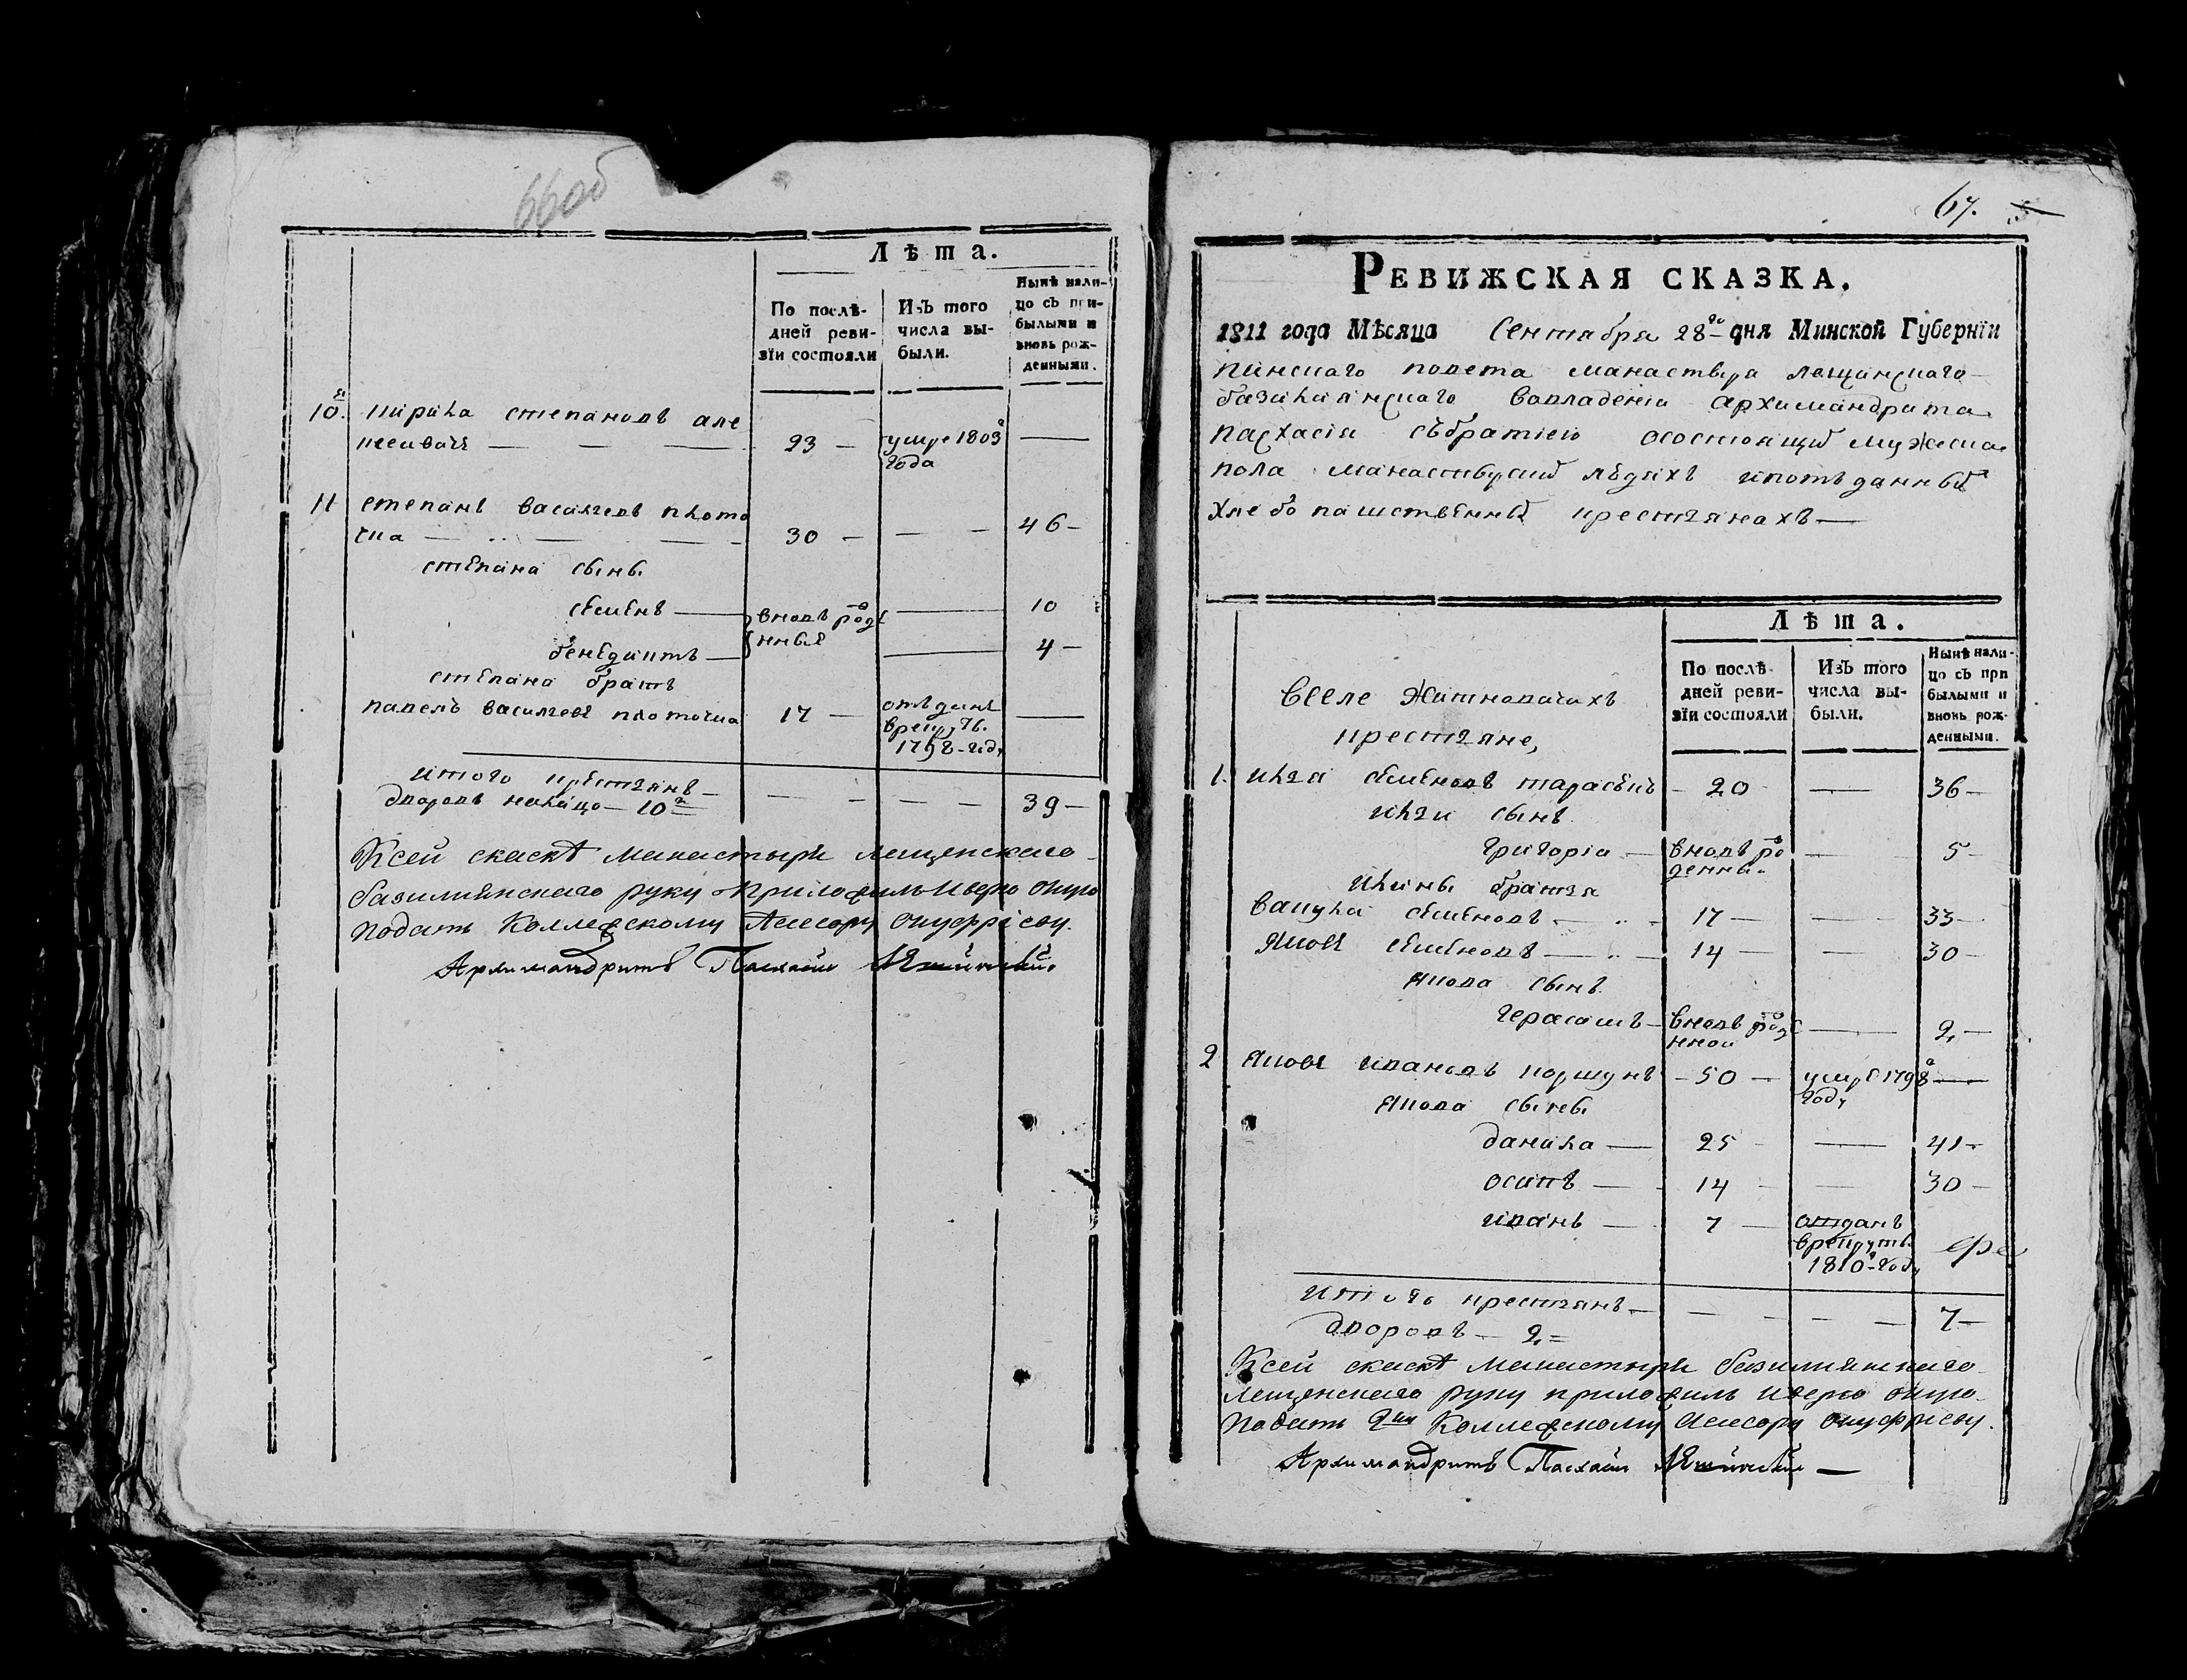 66об
Лѣта.
По послѣ-
дней реви-
зїи состояли
Изъ того
числа вы-
были.
Нынѣ нали-
цо съ при-
былыми и
вновь рож-
денными.
10. кирила степановъ але
ксеивичъ — — — 23 — умре 1803
года —
11 степанъ василлевъ плото
чка — 30 — — — 46 —
степана сыны
семенъ — вновь рож — 10
бенедиктъ — нные — 4 —
степана братъ
павелъ василлевъ плоточка 17 — отъданъ
врекруты.
1798 - году —
итого крестьянъ —
дворовъ налицо — 10 — — — — 39 —
Ксей скаскѣ манастыря лещенскаго
базилиянскаго руку приложилъ и верю оную
подать Коллежскому Асесору Онуфрiеву.
Архимандритъ Пасхаси Лешинский.
67.
Ревижская сказка.
1811 года Мѣсяца Сентября 28го дня Минской Губернїи
пинскаго повета манастыра лещинскаго
базилиянскаго вовладенiи архимандрита
пасхасiя събратиею осостоящиб мужеска
пола манастырскиб людяхъ ипотъданныб
хлебопашственныб крестьянахъ —
Лѣта.
По послѣ-
дней реви-
зїи состояли
Изъ того
числа вы-
были.
Нынѣ нали-
цо съ при
былыми и
вновь рож-
денными.
вселе Житновичахъ
крестьяне,
1. илья семеновъ тарасекъ - 20 — 36 —
ильи сынъ
григорiи — вновь ро — 5 —
денны.
ильины братья
вакула семеновъ — 17 — — 33 —
яковъ семеновъ — 14 — — 30 —
якова сынъ
герасимъ — вновь рож — 2, —
нной
2 яковъ ивановъ коршунъ - 50 — умре 1798 —
году
якова сыны
данила — 25 — 41 —
осипъ — 14 — 30 —
иванъ — 7 — отданъ
врекруты.
1810 - году
итого крестьянъ — — — — — 7 —
дворовъ — 2, =
Ксей скаскѣ манастыря базилиянскаго
лещенскаго руку приложилъ и верю оную
подать Коллежскому Асесору Онуфрiеву.
Архимандритъ Пасхаси Лешинский —